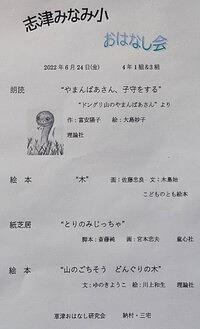 志津みなみ小
おはなし会
2022年6月24日(金) 4年1組&3組
朗読 “やまんばあさん、子守をする”
“ドングリ山のやまんばあさん” より
作：富安陽子 絵：大島妙子
理論社
絵本 “木” 画：佐藤忠良 文：木島始
こどものとも絵本
紙芝居 “とりのみじっちゃ”
脚本：斎藤純 画：宮本忠夫 童心社
絵本 “山のごちそう どんぐりの木”
文：ゆのきようこ 絵：川上和生 理論社
草津おはなし研究会 納村・三宅